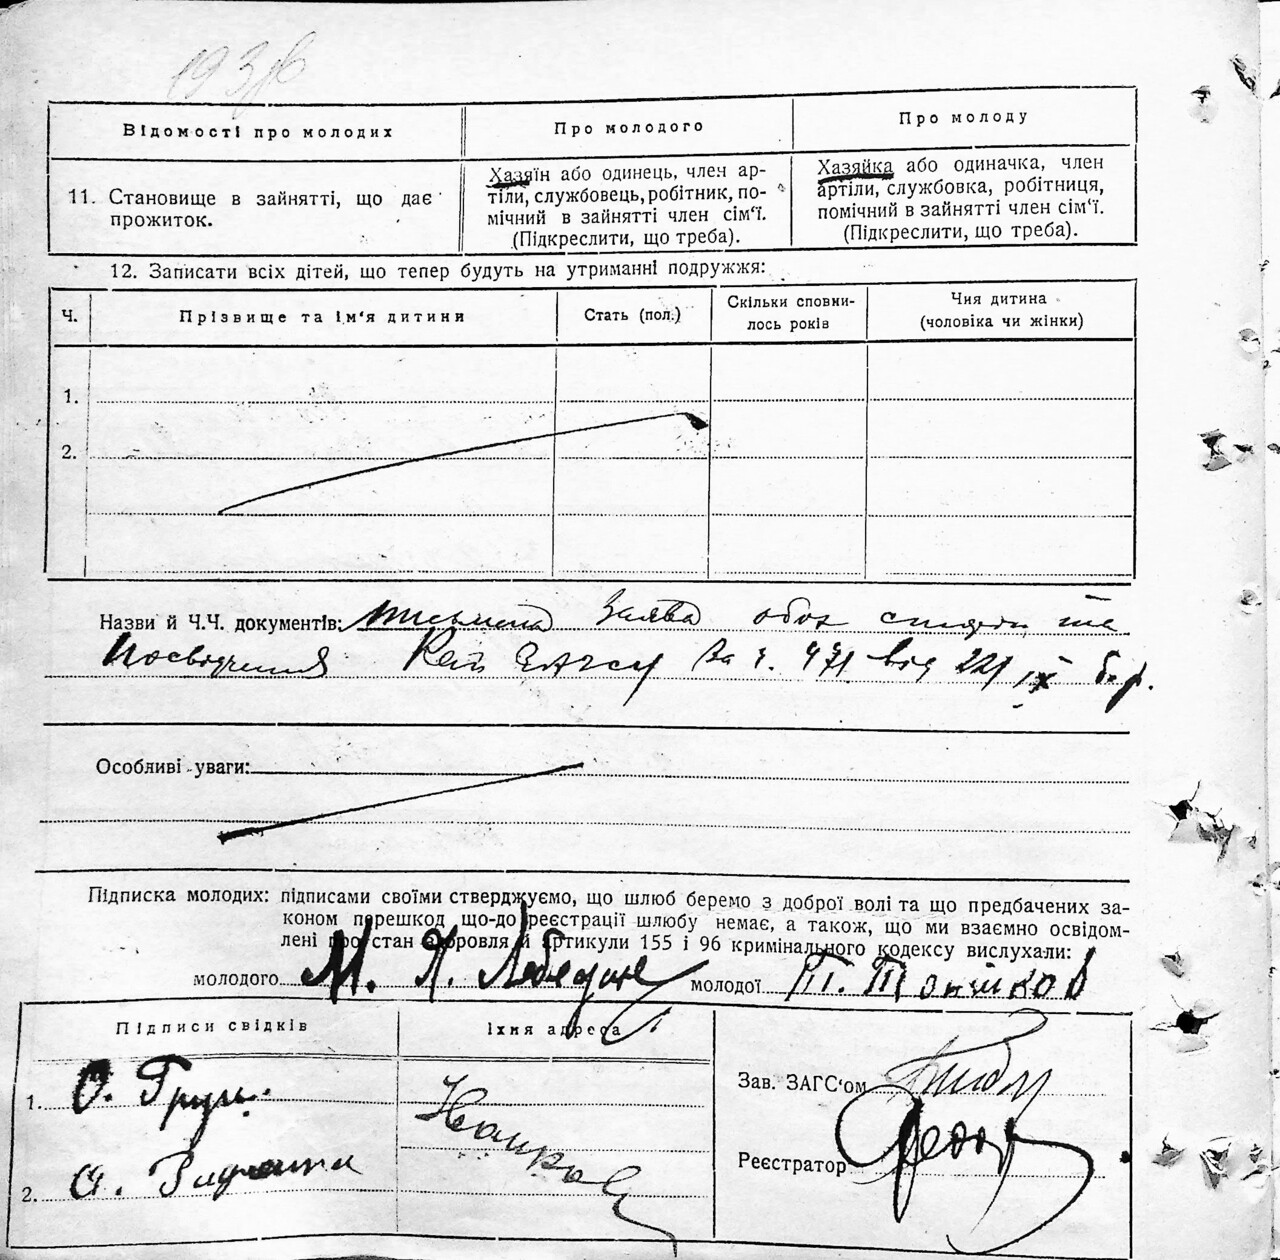 Відомості про молодих
Про молодого
Про молоду
11. Становище в зайнятті, що дає
прожиток.
Хазяїн або одинець, член ар-
тіли, службовець, робітник, по-
мічний в зайнятті член сім'ї.
(Підкреслити, що треба).
Хазяйка або одиначка, член
артіли, службовка, робітниця,
помічний в зайнятті член сім'ї.
(Підкреслити, що треба).
12. Записати всіх дітей, що тепер будуть на утриманні подружжя:
Ч.
Прізвище та ім'я дитини
Стать (пол.)
Скільки сповни-
лось років
Чия дитина
(чоловіка чи жінки)
1.
2.
Назви й Ч.Ч. документів: письмена Заява обох сторін та
Посвідчення ЗАГСу за ч. 471 від 22/IX б.р.
Особливі уваги:
Підписка молодих: підписами своїми стверджуємо, що шлюб беремо з доброї волі та що предбачених за-
коном перешкод що-до реєстрації шлюбу немає, а також, що ми взаємно освідом-
лені про стан здоровля й артикули 155 і 96 кримінального кодексу вислухали:
молодого М. Я.
молодої Т.
Підписи свідків
Їхня адреса
1. О.
2.
Зав. ЗАГС'ом
Реєстратор